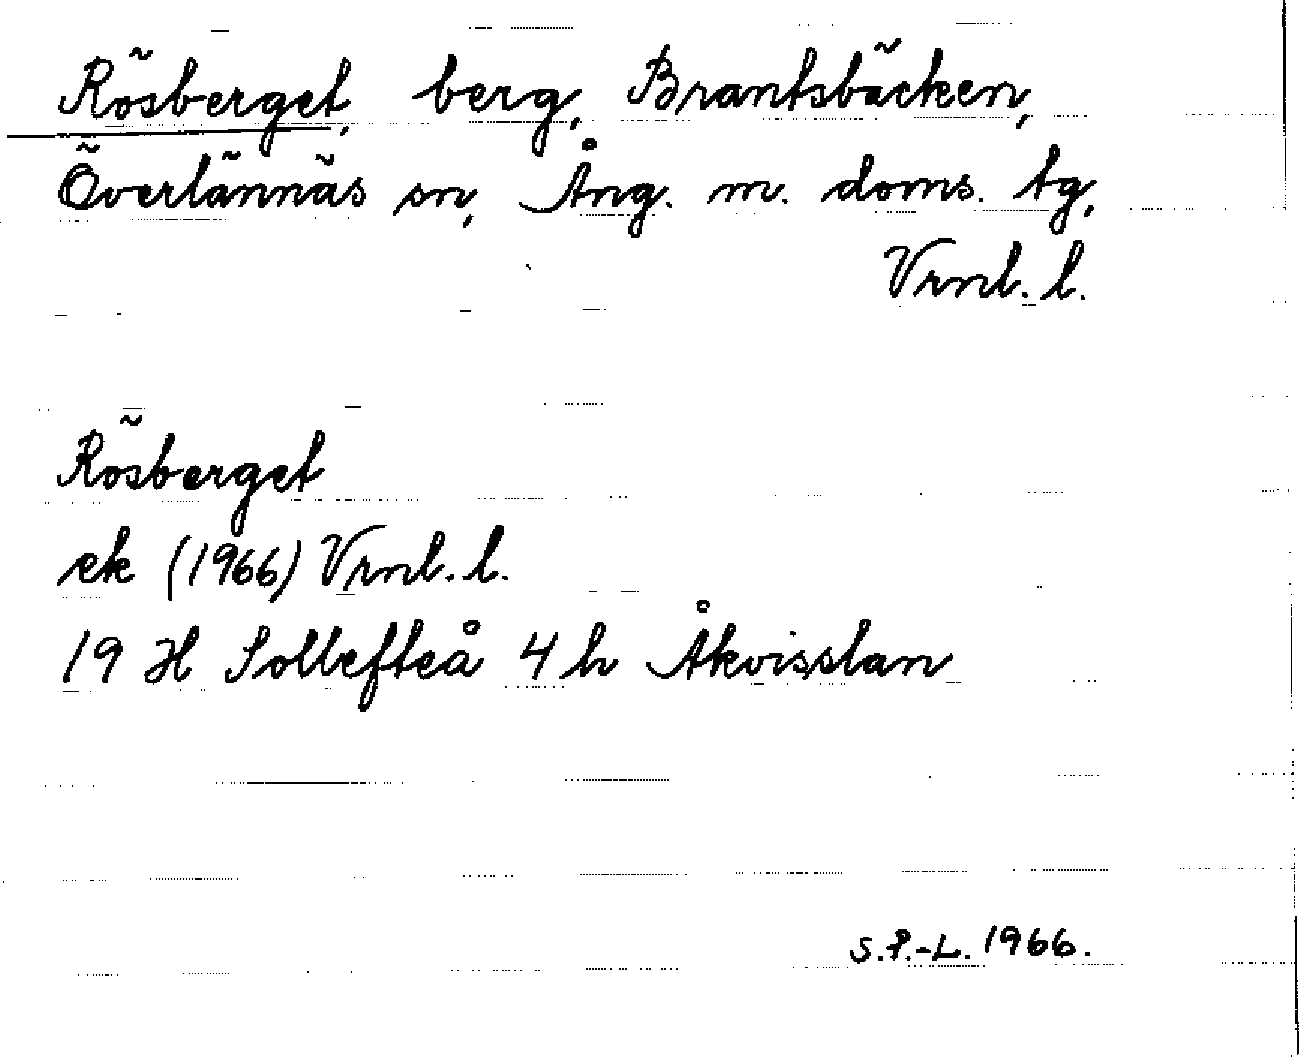 Rösberget, berg, Brantsbäcken,
Överlännäs sn, Ång. m. doms. tg,
Vrml. l.
Rösberget
ek (1966) Vrml. l.
19 H Sollefteå 4 h Åkvisslan
S.P.-L. 1966.